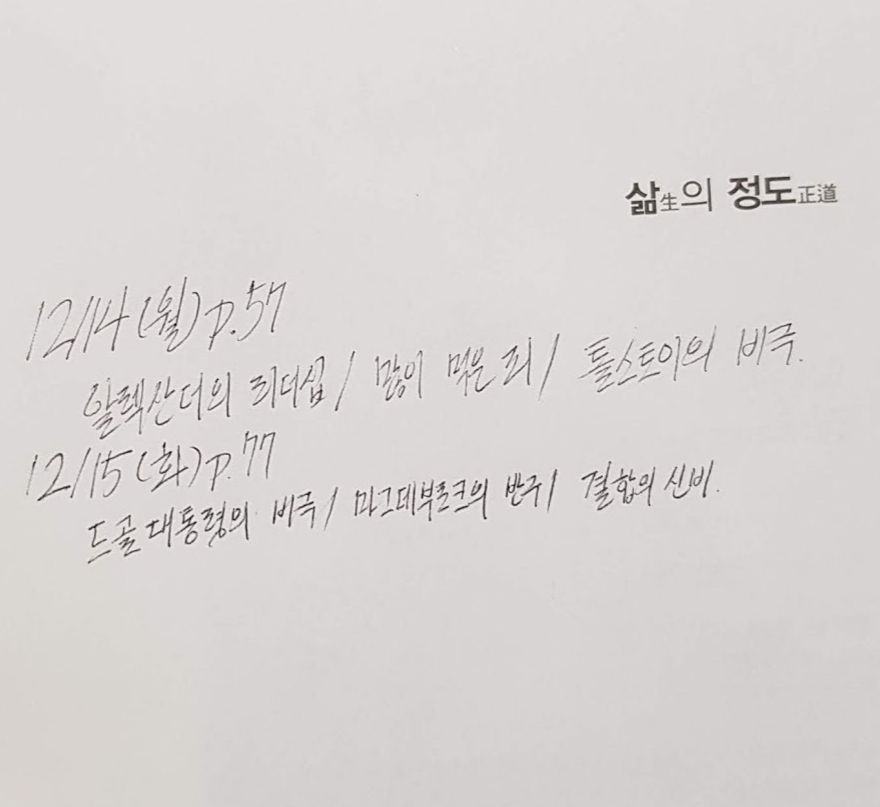 삶生의 정도正道
12/14(월)p.57
알렉산더의 리더십/ 많이 먹은 죄/ 톨스토이의 비극.
12/15(화)p.77
드골 대통령의 비극/ 마그데부르크의 반구/ 결합의 신비.